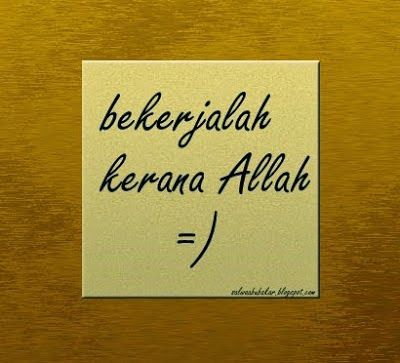 bekerjalah
kerana Allah
=)
salwaabubakar.blogspot.com